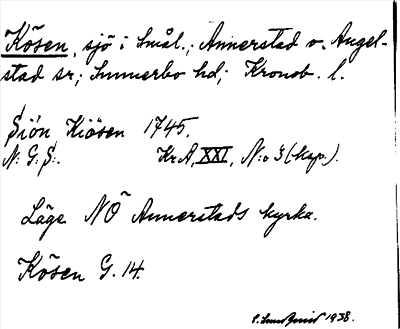 Kösen, sjö i Smål.; Annerstad o. Angel-
stad sr; Sunnerbo hd; Kronob. l.
Siön Kiösen 1745.
N: G: S:. KrA, XXI, N:o 3 (kop.).
Läge NÖ Annerstads kyrka.
Kösen G. 14.
1938.